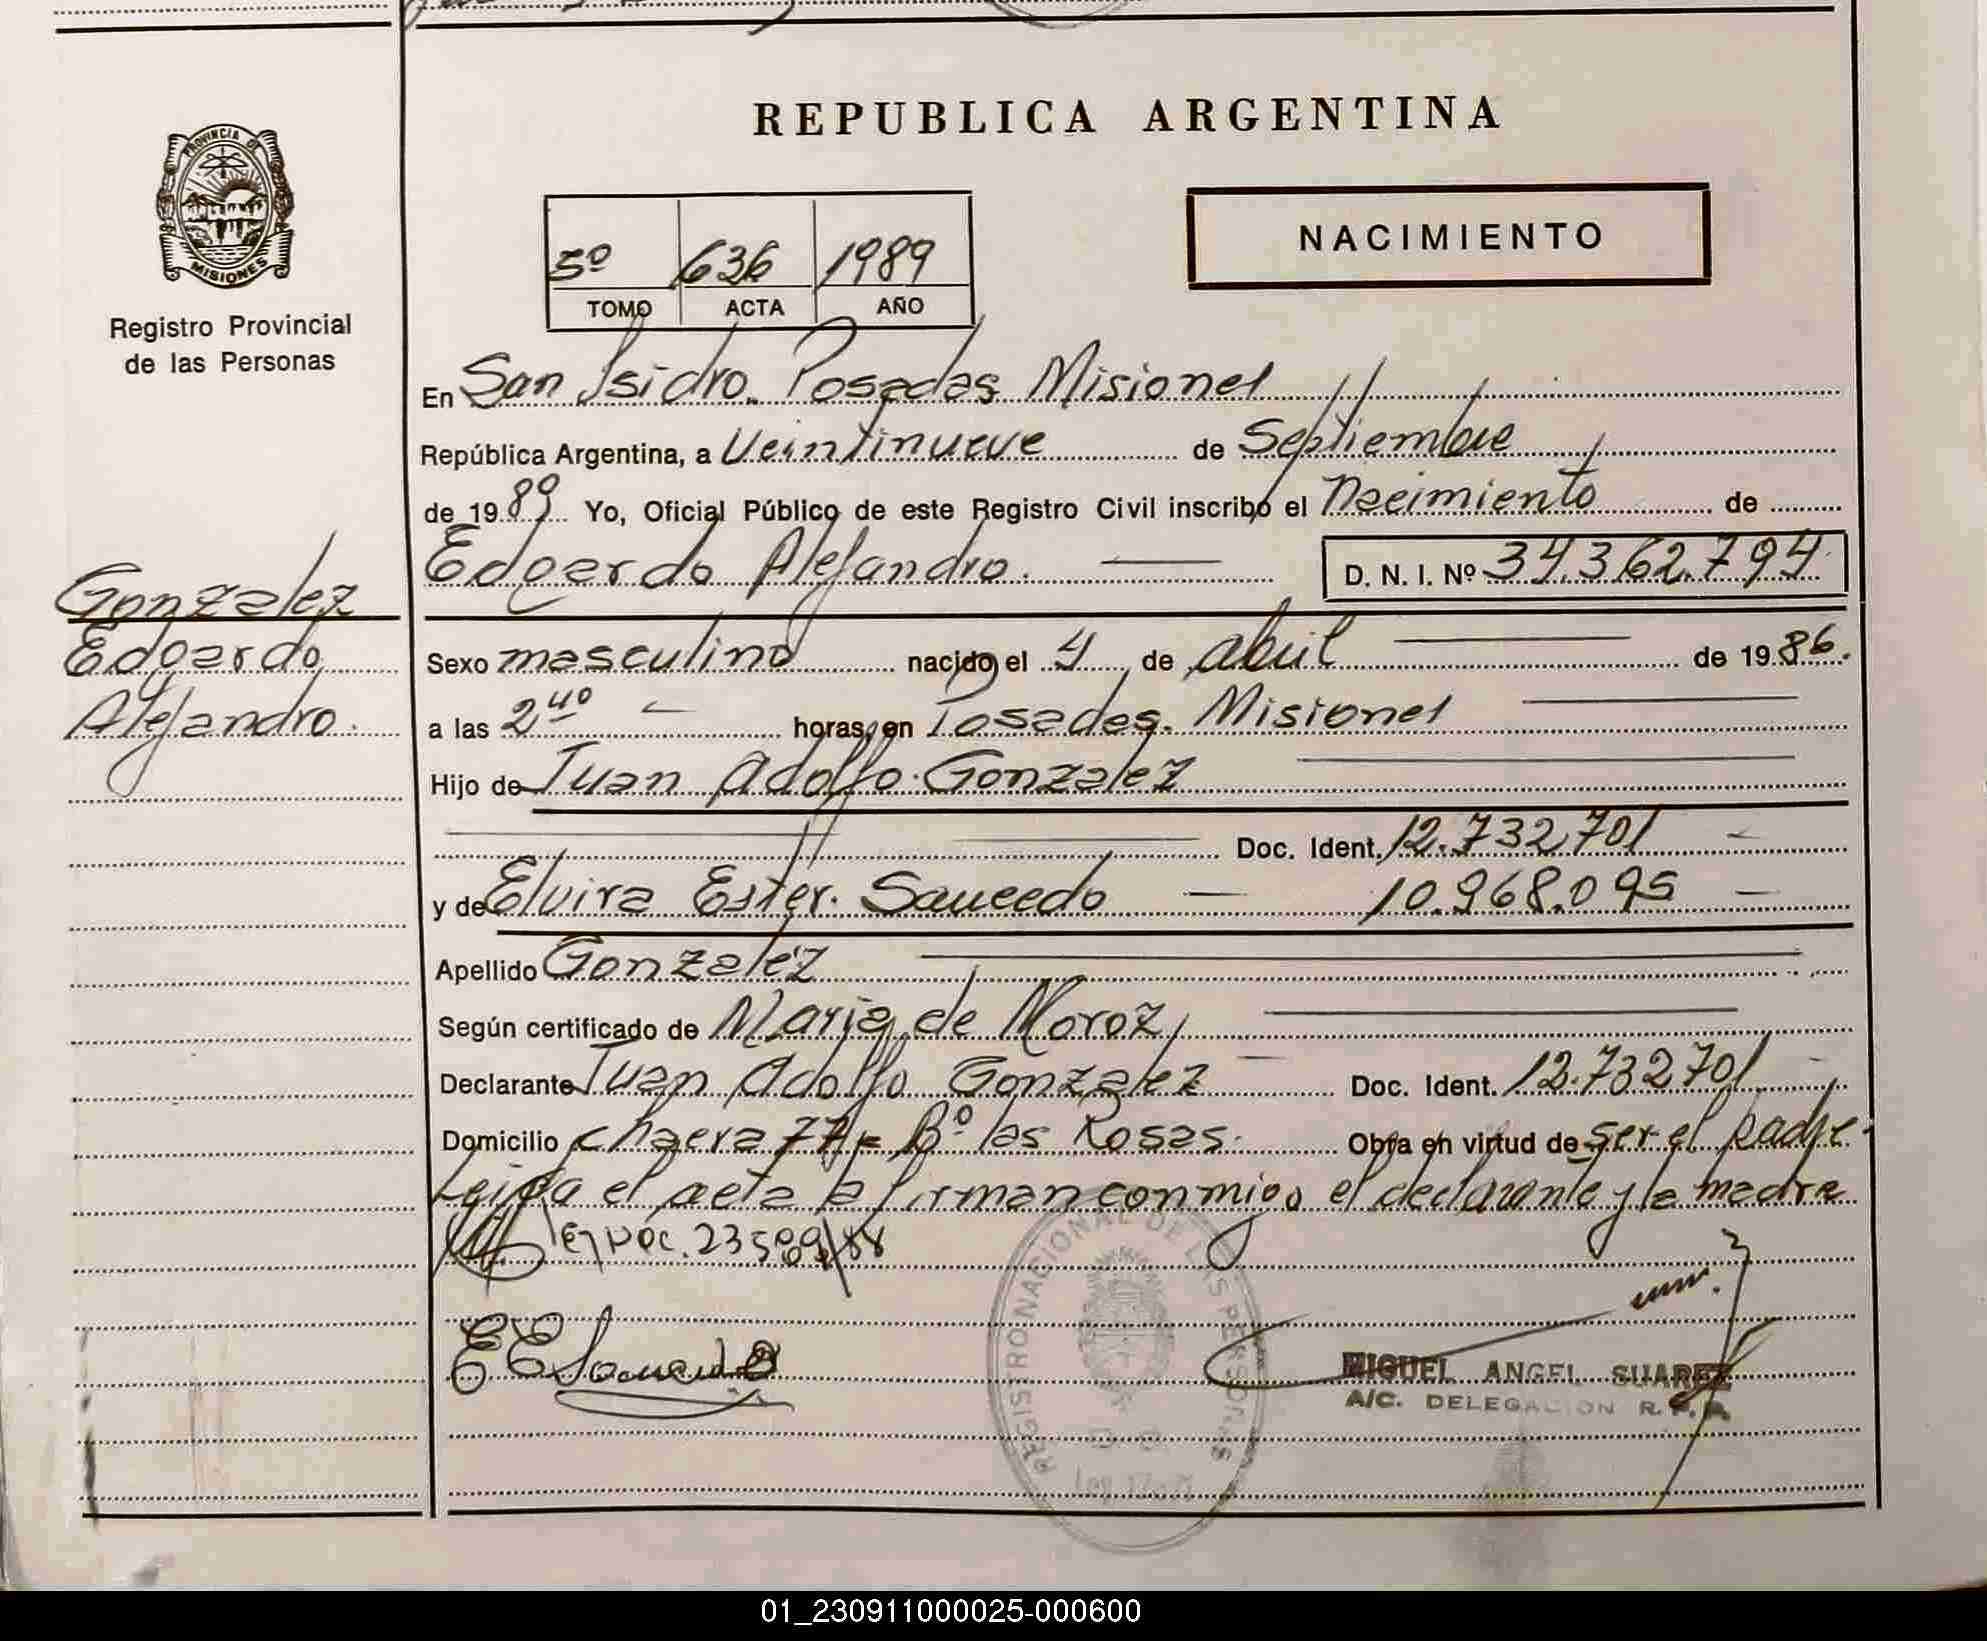 PROVINCIA DE
MISIONES
Registro Provincial
de las Personas
REPUBLICA ARGENTINA
5º 636 1989
TOMO ACTA AÑO
NACIMIENTO
En San Isidro. Posadas Misiones
República Argentina, a Veintinueve de Septiembre
de 1989 Yo, Oficial Público de este Registro Civil inscribo el Nacimiento de
Edgardo Alejandro. D. N. I. Nº 34.362.794
Gonzalez
Edgardo
Alejandro.
Sexo masculino nacido el 4 de abril de 1986.
a las 2 40 horas, en Posadas. Misiones
Hijo de Juan Adolfo Gonzalez
Doc. Ident. 12.732.701
y de Elvira Ester. Saucedo 10.968.095
Apellido Gonzalez
Según certificado de Maria de Moroz
Declarante Juan Adolfo Gonzalez Doc. Ident. 12.732.701
Domicilio chacra 77 Bº las Rosas. Obra en virtud de ser el padre.
Leida el acta la firman conmigo el declarante y la madre
REGISTRO NACIONAL DE LAS PERSONAS
MIGUEL ANGEL SUAREZ
A/C. DELEGACION R. P. P.
01_230911000025-000600